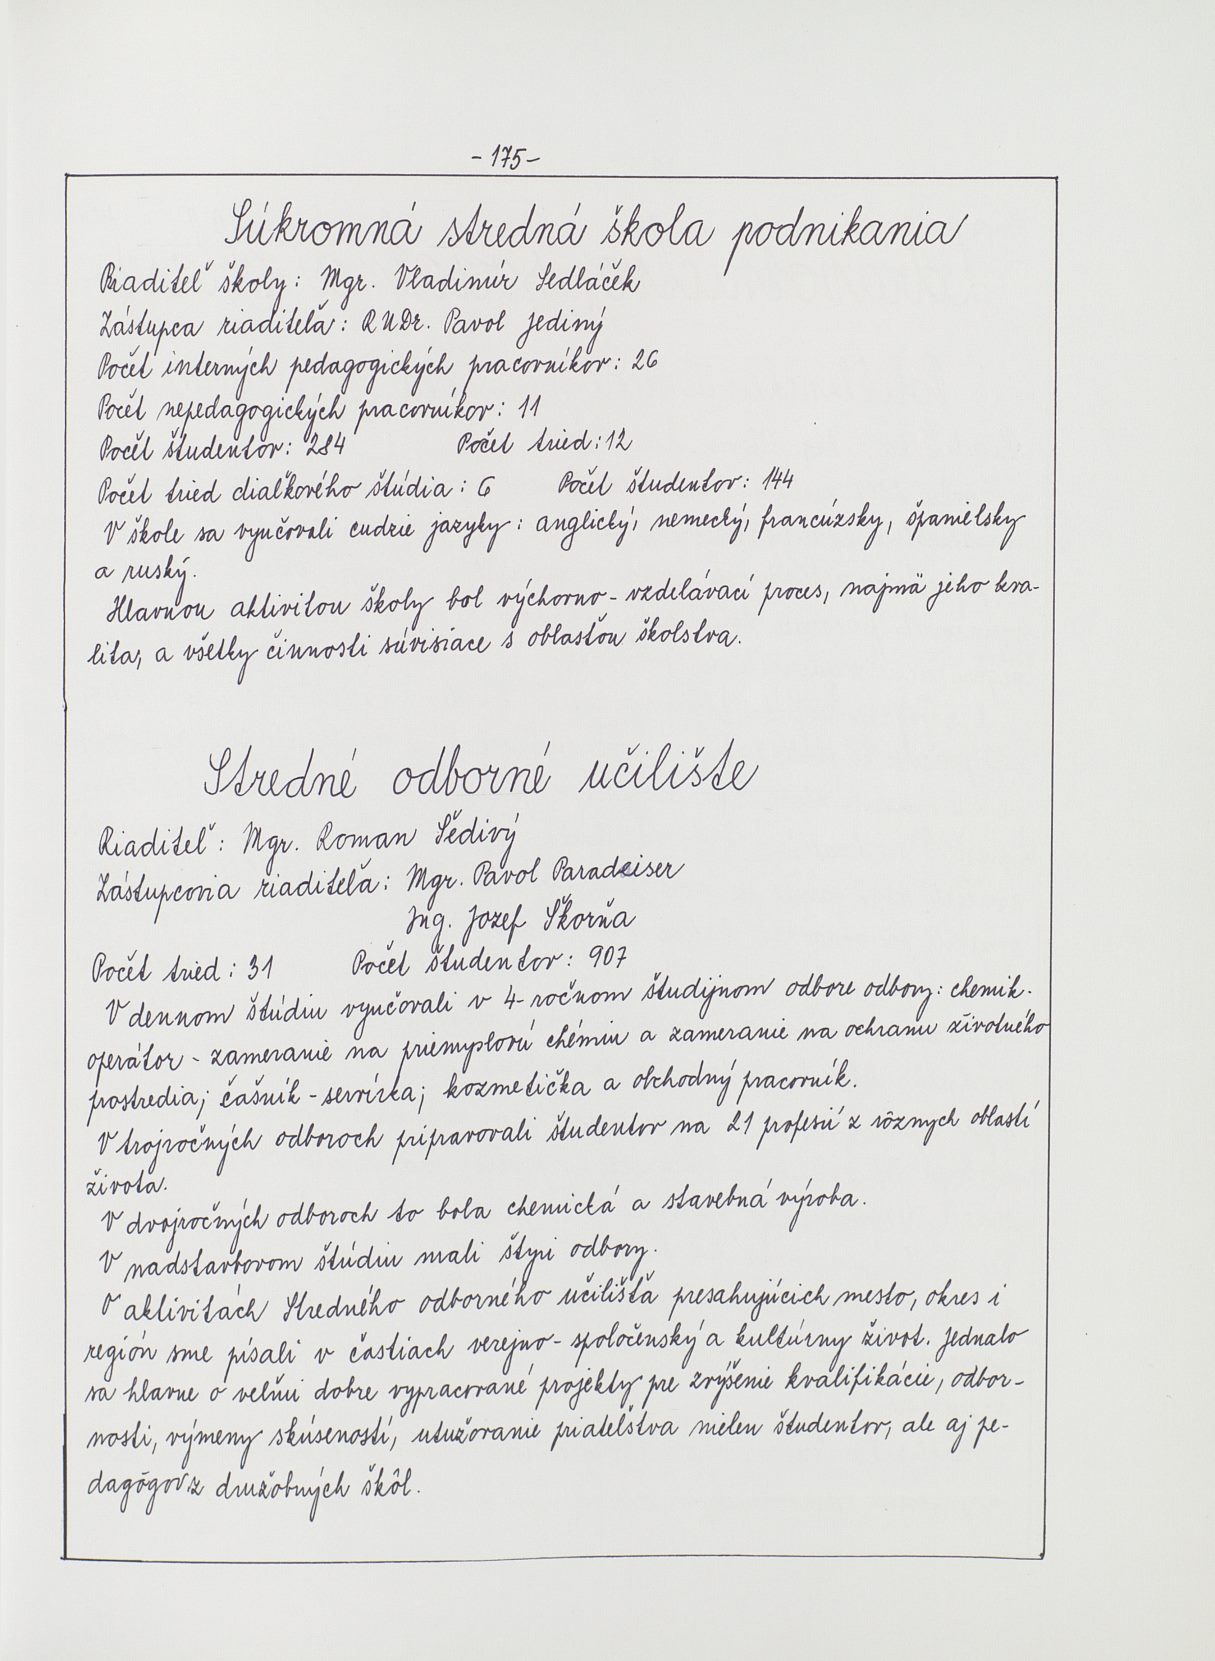 - 175 -
Súkromná stredná škola podnikania
Riaditeľ školy: Mgr. Vladimír Sedláček
Zástupca riaditeľa: RNDr. Pavol Jediný
Počet interných pedagogických pracovníkov: 26
Počet nepedagogických pracovníkov: 11
Počet študentov: 284 Počet tried: 12
Počet tried diaľkového štúdia: 6 Počet študentov: 144
V škole sa vyučovali cudzie jazyky: anglický, nemecký, francúzsky, španielsky
a ruský.
Hlavnou aktivitou školy bol výchovno - vzdelávací proces, najmä jeho kva-
lita, a všetky činnosti súvisiace s oblasťou školstva.
Stredné odborné učilište
Riaditeľ: Mgr. Roman Šedivý
Zástupcovia riaditeľa: Mgr. Pavol Paradeiser
Ing. Jozef Škorňa
Počet tried: 31 Počet študentov: 907
V dennom štúdiu vyučovali v 4-ročnom študijnom odbore odbory: chemik-
operátor - zameranie na priemyslovú chémiu a zameranie na ochranu životného
prostredia; čašník - servírka; kozmetička a obchodný pracovník.
V trojročných odboroch pripravovali študentov na 21 profesií z rôznych oblastí
života.
V dvojročných odboroch to bola chemická a stavebná výroba.
V nadstavbovom štúdiu mali štyri odbory.
O aktivitách Stredného odborného učilišťa presahujúcich mesto, okres i
región sme písali v častiach verejno - spoločenský a kultúrny život. Jednalo
sa hlavne o veľmi dobre vypracované projekty pre zvýšenie kvalifikácie, odbor-
nosti, výmeny skúseností, utužovanie priateľstva nielen študentov, ale aj pe-
dagógov z družobných škôl.